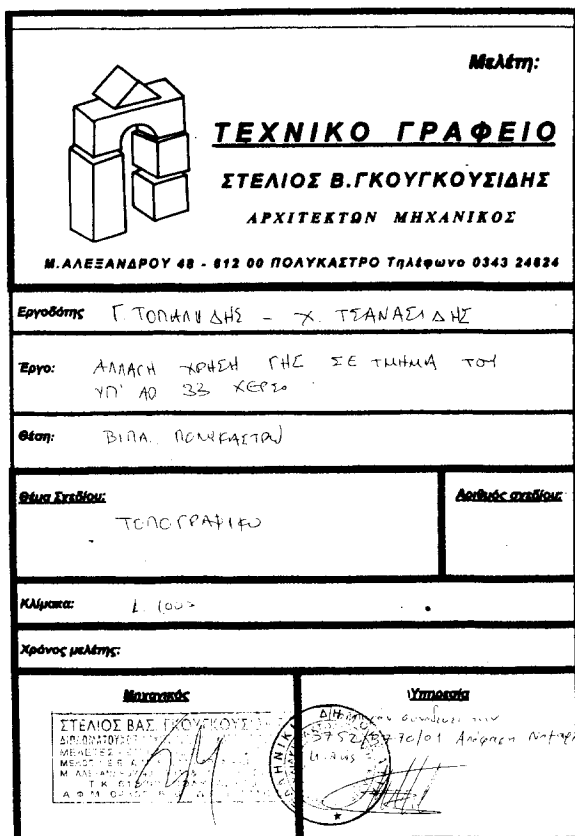 Μελέτη:
ΤΕΧΝΙΚΟ ΓΡΑΦΕΙΟ
ΣΤΕΛΙΟΣ Β.ΓΚΟΥΓΚΟΥΣΙΔΗΣ
ΑΡΧΙΤΕΚΤΩΝ ΜΗΧΑΝΙΚΟΣ
Μ.ΑΛΕΞΑΝΔΡΟΥ 48 - 612 00 ΠΟΛΥΚΑΣΤΡΟ Τηλέφωνο 0343 24624
Εργοδότης Γ. ΤΟΠΑΛΙΔΗΣ - Χ. ΤΣΑΝΑΣΙΔΗΣ
Έργο: ΑΛΛΑΓΗ ΧΡΗΣΗ ΓΗΣ ΣΕ ΤΜΗΜΑ ΤΟΥ
ΥΠ' ΑΡ 33 ΧΕΡΣΟ
Θέση: ΒΙΠΑ. ΠΟΛΥΚΑΣΤΡΟΥ
Θέμα Σχεδίου:
Αριθμός σχεδίου:
ΤΟΠΟΓΡΑΦΙΚΟ
Κλίμακα:
Χρόνος μελέτης:
Μηχανικός
Υπηρεσία
ΣΤΕΛΙΟΣ ΒΑΣ. ΓΚΟΥΓΚΟΥΣ
συνοδεύει την
Απόφαση